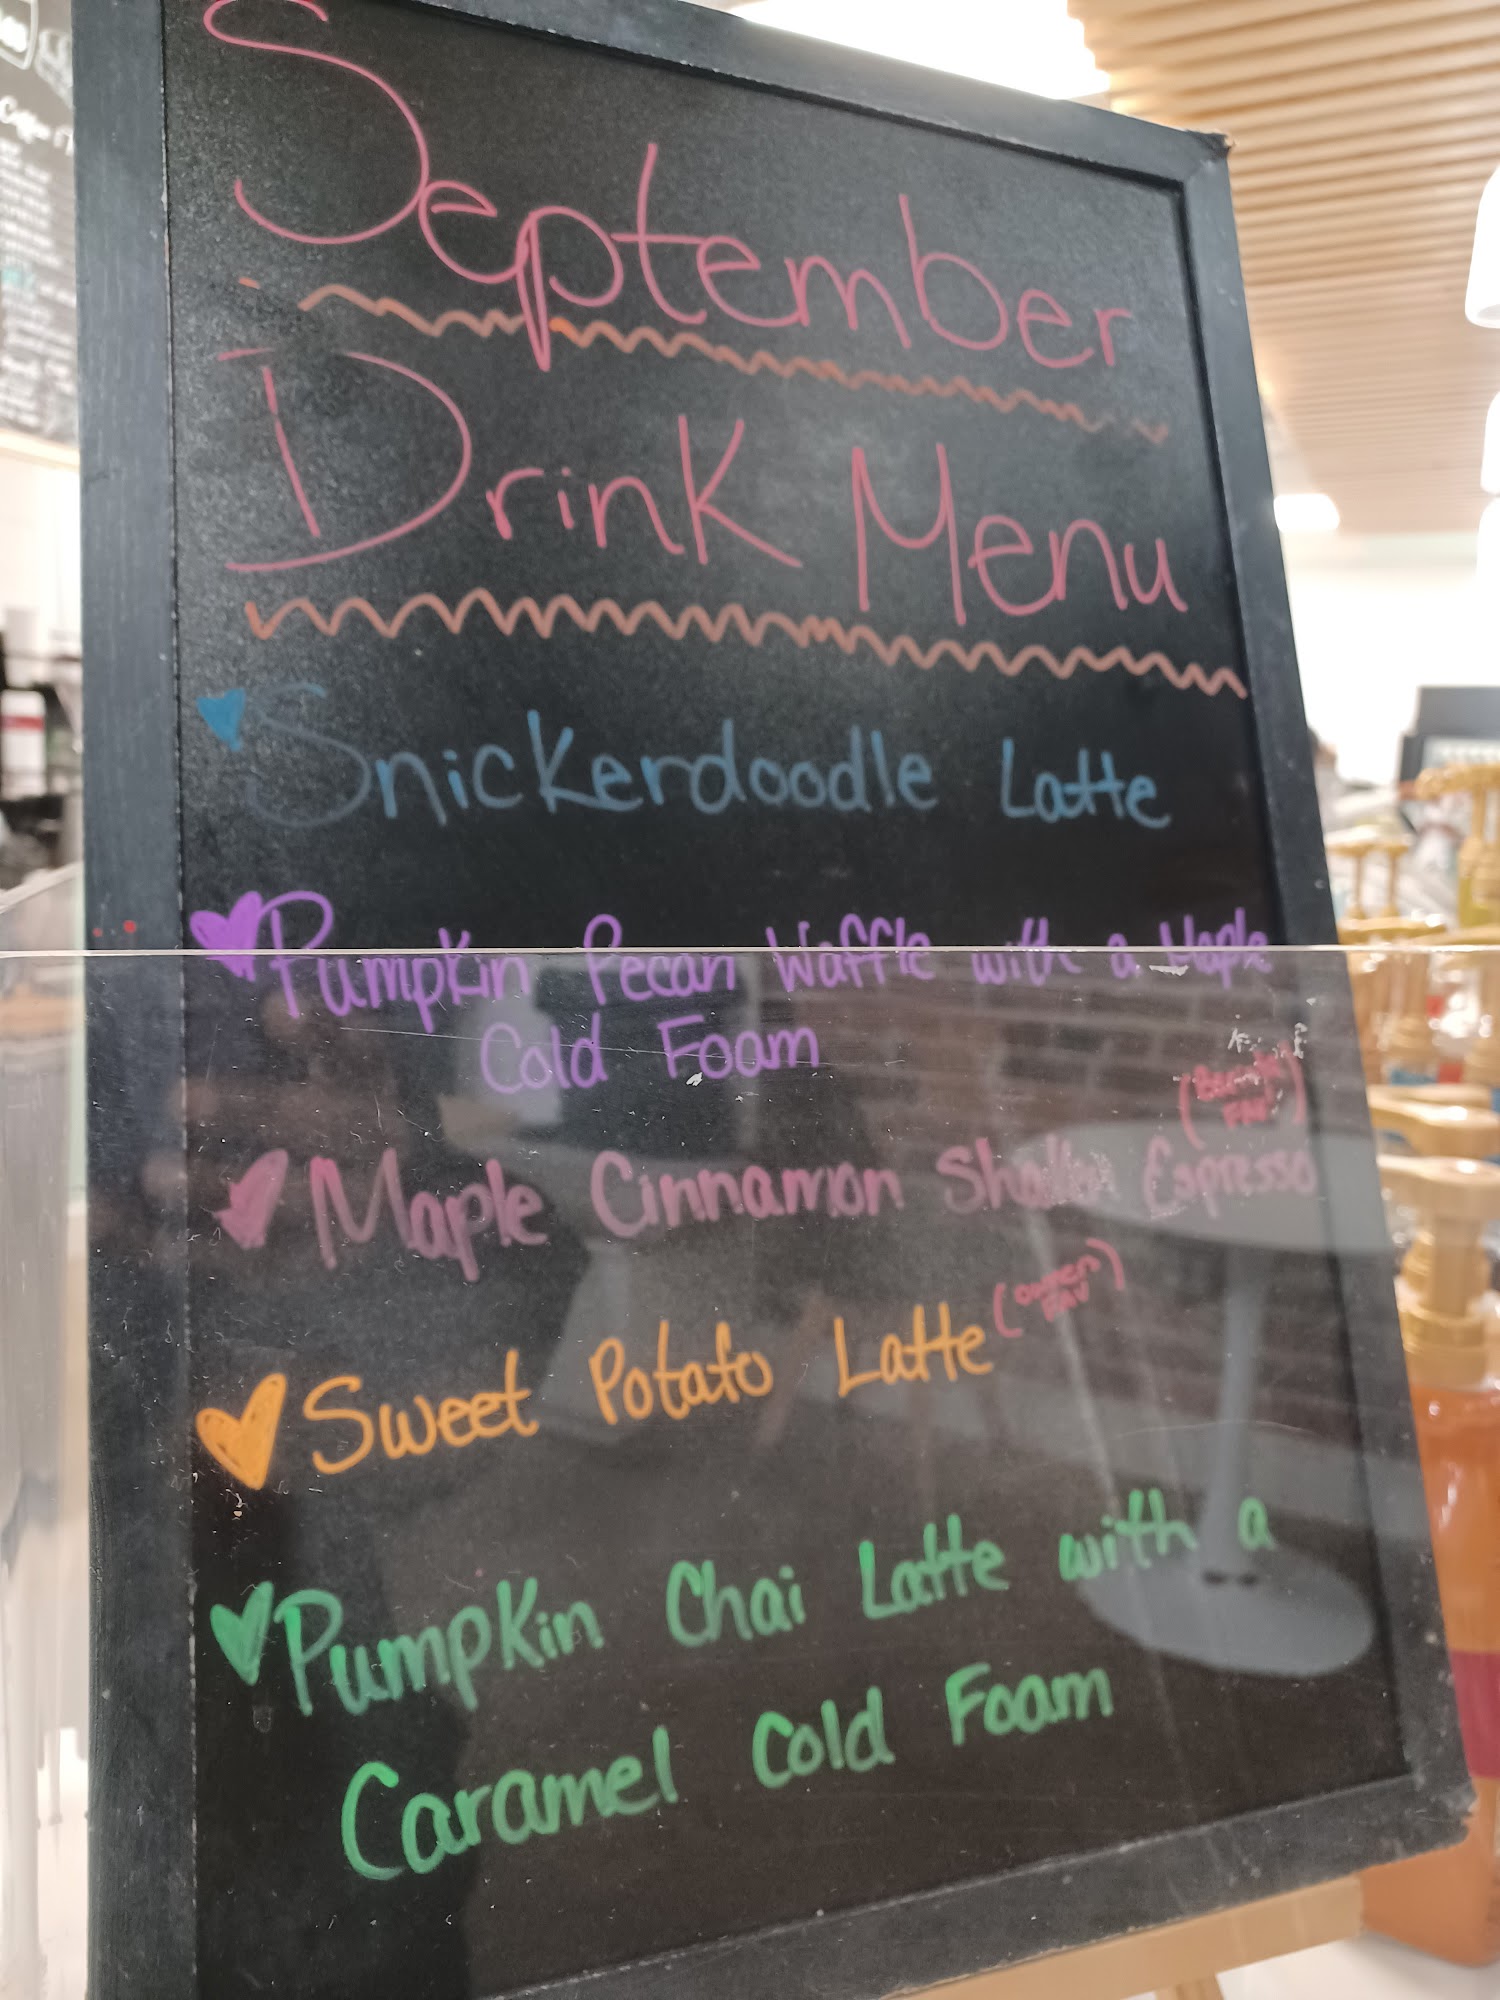 September
Drink Menu
Snickerdoodle Latte
Pumpkin Pecan Waffle with a Maple
Cold Foam
Maple Cinnamon Shaken Espresso
FAV
Sweet Potato Latte
FAV
Pumpkin Chai Latte with a
Caramel Cold Foam